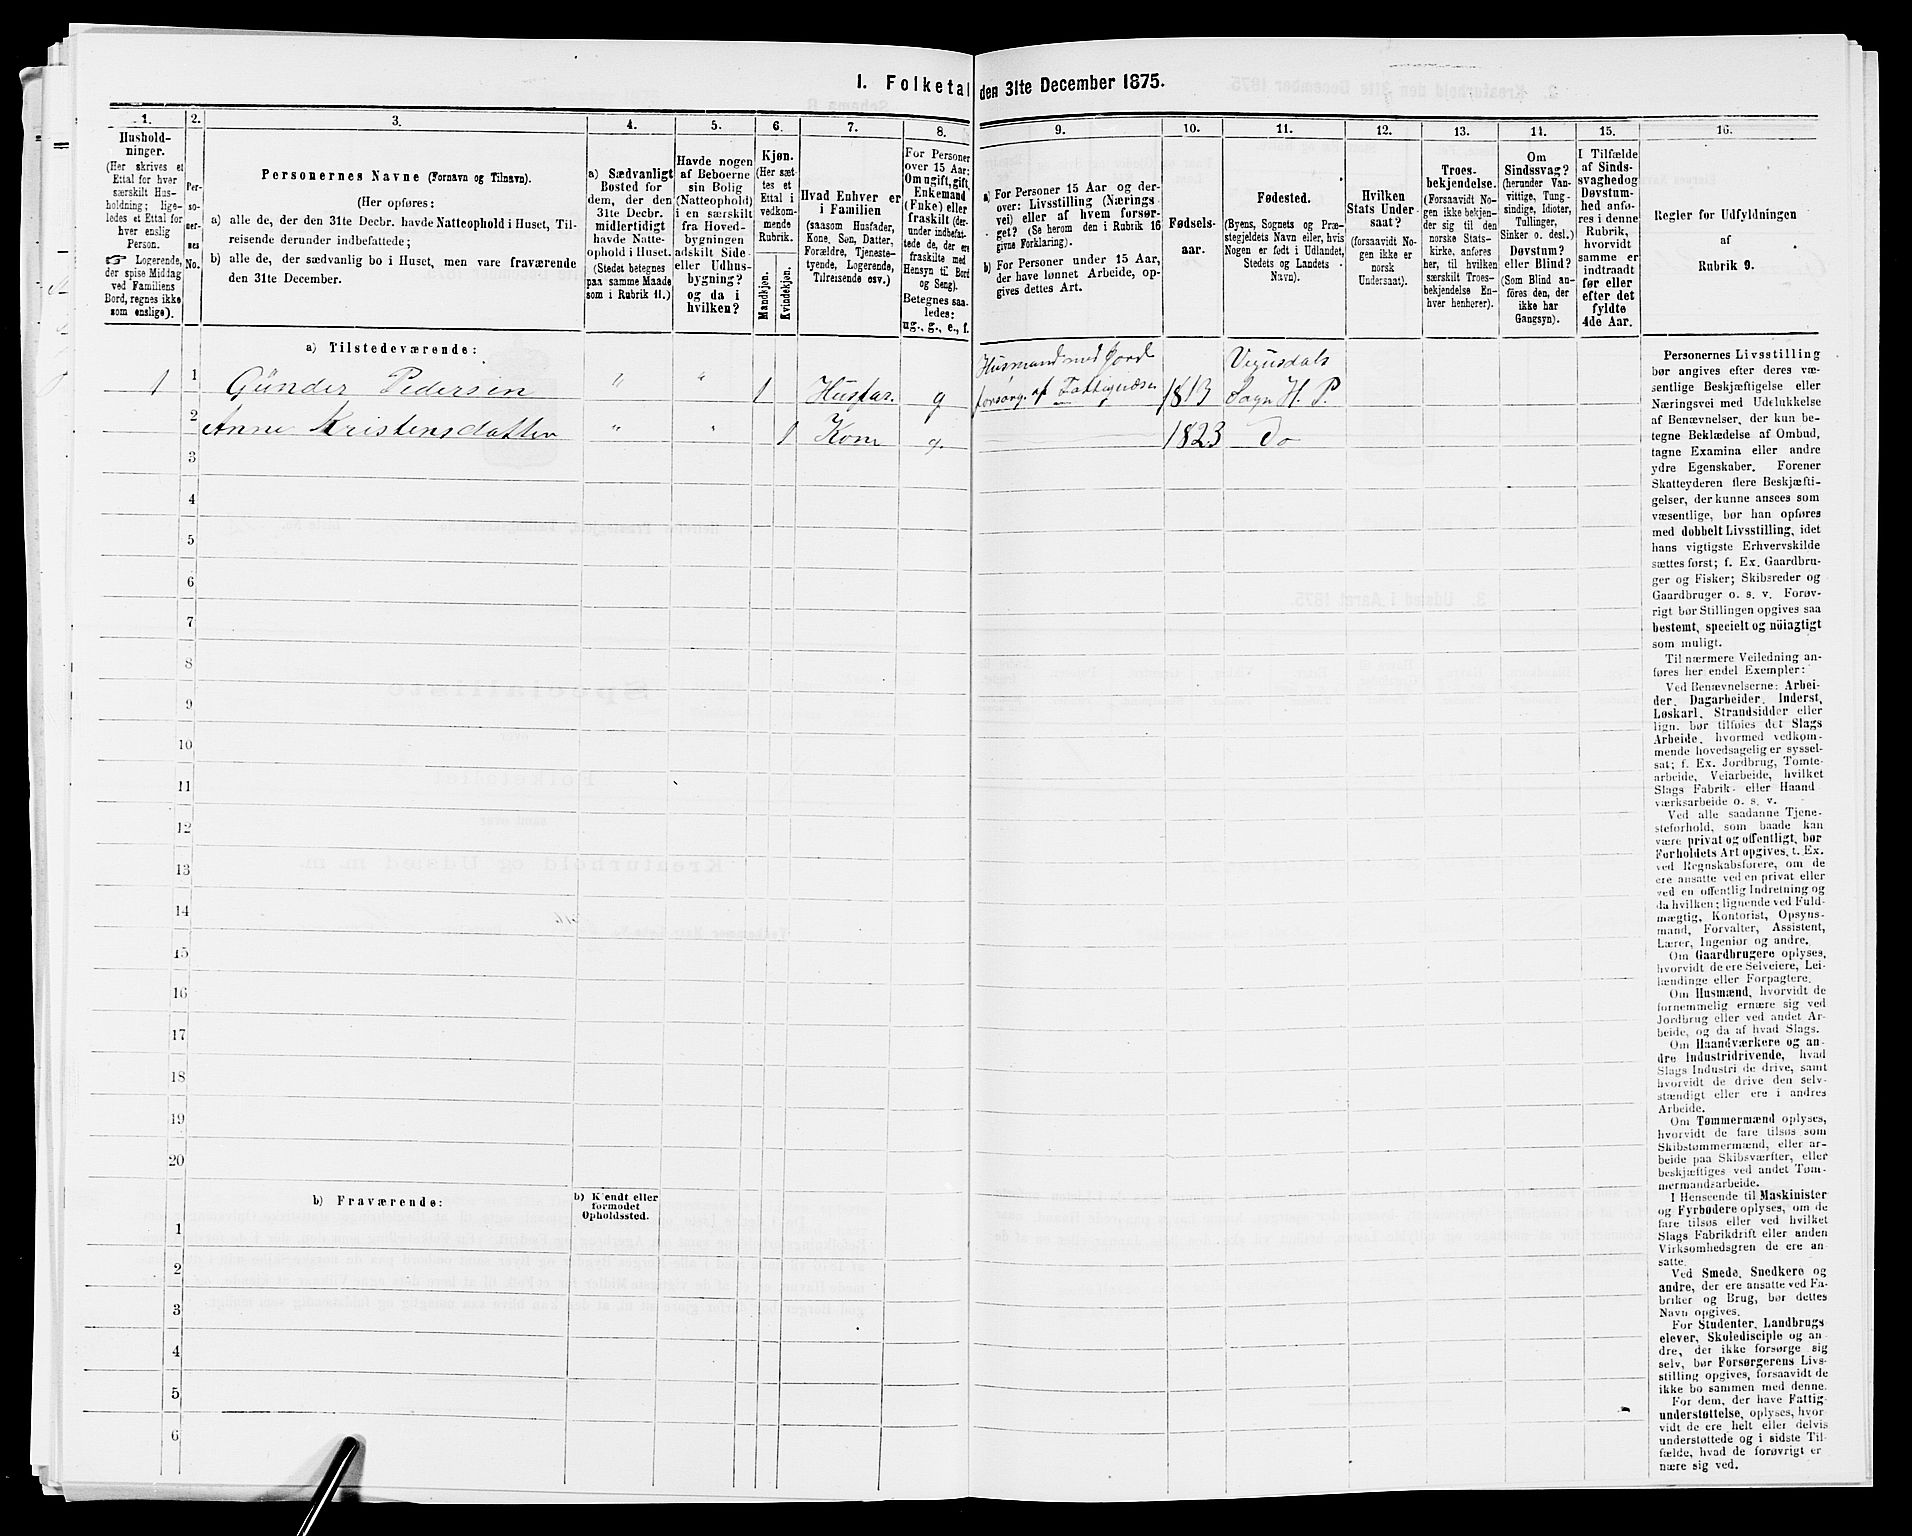 1. Folketal den 31te December 1875.
1.
2.
3.
4.
5.
6.
7.
8.
9.
10.
11.
12.
13.
14.
15.
16.
Hushold-
ninger.
(Her skrives et
Ettal for hver
særskilt Hus-
holdning; lige-
ledes et Ettal for
hver enslig
Person.
☞ Logerende,
der spise Middag
ved Familiens
Bord, regnes ikke
som enslige).
Per-
so-
ner-
nes
No.
Personernes Navne (Fornavn og Tilnavn).
(Her opføres:
a) alle de, der den 31te Decbr. havde Natteophold i Huset, Til-
reisende derunder indbefattede;
b) alle de, der sædvanlig bo i Huset, men vare fraværende
den 31te December.
a) Sædvanligt
Bosted for
dem, der den
31te Decbr.
midlertidigt
havde Natte-
ophold i Huset.
(Stedet betegnes
paa samme Maade
som i Rubrik 11.)
Havde nogen
af Beboerne
sin Bolig
(Natteophold)
i en særskilt
fra Hoved-
bygningen
adskilt Side-
eller Udhus-
bygning?
og da i
hvilken?
Kjøn.
(Her sæt-
tes et
Ettal i
vedkom-
mende
Rubrik.
Mandkjøn.
Kvindekjøn.
Hvad Enhver er
i Familien
(saasom Husfader,
Kone, Søn, Datter,
Forældre, Tjeneste-
tyende, Logerende,
Tilreisende osv.)
For Personer
over 15 Aar:
Om ugift, gift,
Enkemand
(Enke) eller
fraskilt (der-
under indbefat-
tede de, der ere
fraskilte med
Hensyn til Bord
og Seng).
Betegnes saa-
ledes:
ug., g., e., f.
a) For Personer 15 Aar og der-
over: Livsstilling (Nærings-
vei) eller af hvem forsør-
get? (Se herom den i Rubrik 16
givne Forklaring).
b) For Personer under 15 Aar,
der have lønnet Arbeide, op-
gives dettes Art.
Fødsels-
aar.
Fødested.
(Byens, Sognets og Præ-
stegjeldets Navn eller, hvis
Nogen er født i Udlandet,
Stedets og Landets
Navn).
Hvilken
Stats Under-
saat?
(forsaavidt No-
gen ikke er
norsk
Undersaat).
Troes-
bekjendelse.
(Forsaavidt No-
gen ikke bekjen-
der sig til den
norske Stats-
kirke, anføres
her, til hvilken
særskilt Troes-
bekjendelse En-
hver henhører).
Om
Sindssvag?
(herunder Van-
vittige, Tung-
sindige, Idioter,
Tullinger,
Sinker o. desl.)
Døvstum?
eller Blind?
(Som Blind an-
føres den, der
ikke har
Gangsyn).
I Tilfælde
af Sinds-
svaghed og
Døvstum-
hed anfø-
res i denne
Rubrik,
hvorvidt
samme er
indtraadt
før eller
efter det
fyldte
4de Aar.
Regler for Udfyldningen
af
Rubrik 9.
a) Tilstedeværende:
Husmand med Jord
Vegusdals
1 1 Günder Pedersen " " 1 Husfar g forsørg. af Fattigvæsen 1813 Sogn H. P.
2 Anne Kristensdatter " " 1 Kone g. 1823 Do
3
4
5
6
7
8
9
10
11
12
13
14
15
16
17
18
19
20
b) Fraværende:
b) Kjendt eller
formodet
Opholdssted.
1
2
3
4
5
6
Personernes Livsstilling
bør angives efter deres væ-
sentlige Beskjæftigelse eller
Næringsvei med Udelukkelse
af Benævnelser, der kun be-
tegne Beklædelse af Ombud,
tagne Examina eller andre
ydre Egenskaber. Forener
Skatteyderen flere Beskjæfti-
gelser, der kunne ansees som
væsentlige, bør han opføres
med dobbelt Livsstilling, idet
hans vigtigste Erhvervskilde
sættes først; f. Ex. Gaardbru-
ger og Fisker; Skibsreder og
Gaardbruger o. s. v. Forøv-
rigt bør Stillingen opgives saa
bestemt, specielt og nøiagtigt
som muligt.
Til nærmere Veiledning an-
føres her endel Exempler:
Ved Benævnelserne: Arbei-
der, Dagarbeider, Inderst,
Løskarl, Strandsidder eller
lign. bør tilføies det Slags
Arbeide, hvormed vedkom-
mende hovedsagelig er syssel-
sat; f. Ex. Jordbrug, Tomte-
arbeide, Veiarbeide, hvilket
Slags Fabrik- eller Haand-
værksarbeide o. s. v.
Ved alle saadanne Tjene-
steforhold, som baade kan
være privat og offentligt, bør
Forholdets Art opgives, t. Ex.
ved Regnskabsførere, om de
ere ansatte ved en privat eller
ved en offentlig Indretning og
da hvilken; lignende ved Fuld-
mægtig, Kontorist, Opsyns-
mand, Forvalter, Assistent,
Lærer, Ingeniør og andre.
Om Gaardbrugere oplyses,
hvorvidt de ere Selveiere, Lei-
lændinge eller Forpagtere.
Om Husmænd, hvorvidt de
fornemmelig ernære sig ved
Jordbrug eller ved andet Ar-
beide, og da af hvad Slags.
Om Haandværkere og an-
dre Industridrivende, hvad
Slags Industri de drive, samt
hvorvidt de drive den selv-
stændigt eller ere i andres
Arbeide.
Om Tømmermænd oplyses,
hvorvidt de fare tilsøs som
Skibstømmermænd, eller ar-
beide paa Skibsværfter, eller
beskjæftiges ved andet Tøm-
mermandsarbeide.
I Henseende til Maskinister
og Fyrbødere oplyses, om de
fare tilsøs eller ved hvilket
Slags Fabrikdrift eller anden
Virksomhedsgren de ere an-
satte.
Ved Smede, Snedkere og
andre, der ere ansatte ved Fa-
briker og Brug, bør dettes
Navn opgives.
For Studenter, Landbrugs-
elever, Skoledisciple og an-
dre, der ikke forsørge sig
selv, bør Forsørgerens Livs-
stilling opgives, forsaavidt de
ikke bo sammen med denne.
For dem, der have Fattig-
understøttelse, oplyses, hvor-
vidt de ere helt eller delvis
understøttede og i sidste Til-
fælde, hvad de forøvrigt er-
nære sig ved.